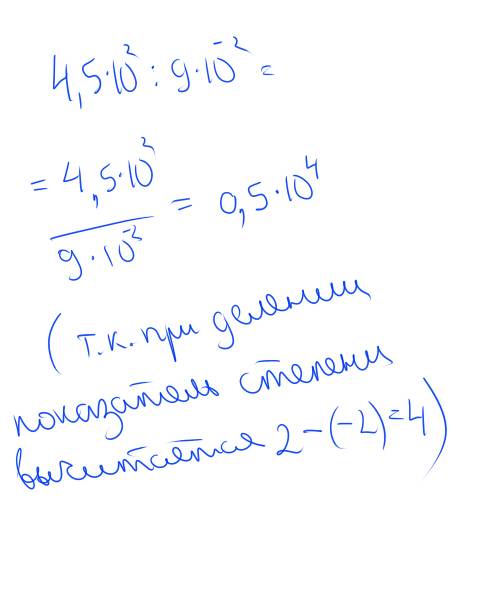 4,5·10² : 9·10⁻² =
= 4,5·10² / 9·10⁻² = 0,5·10⁴
(т.к. при делении
показатель степени
вычитается 2-(-2)=4)